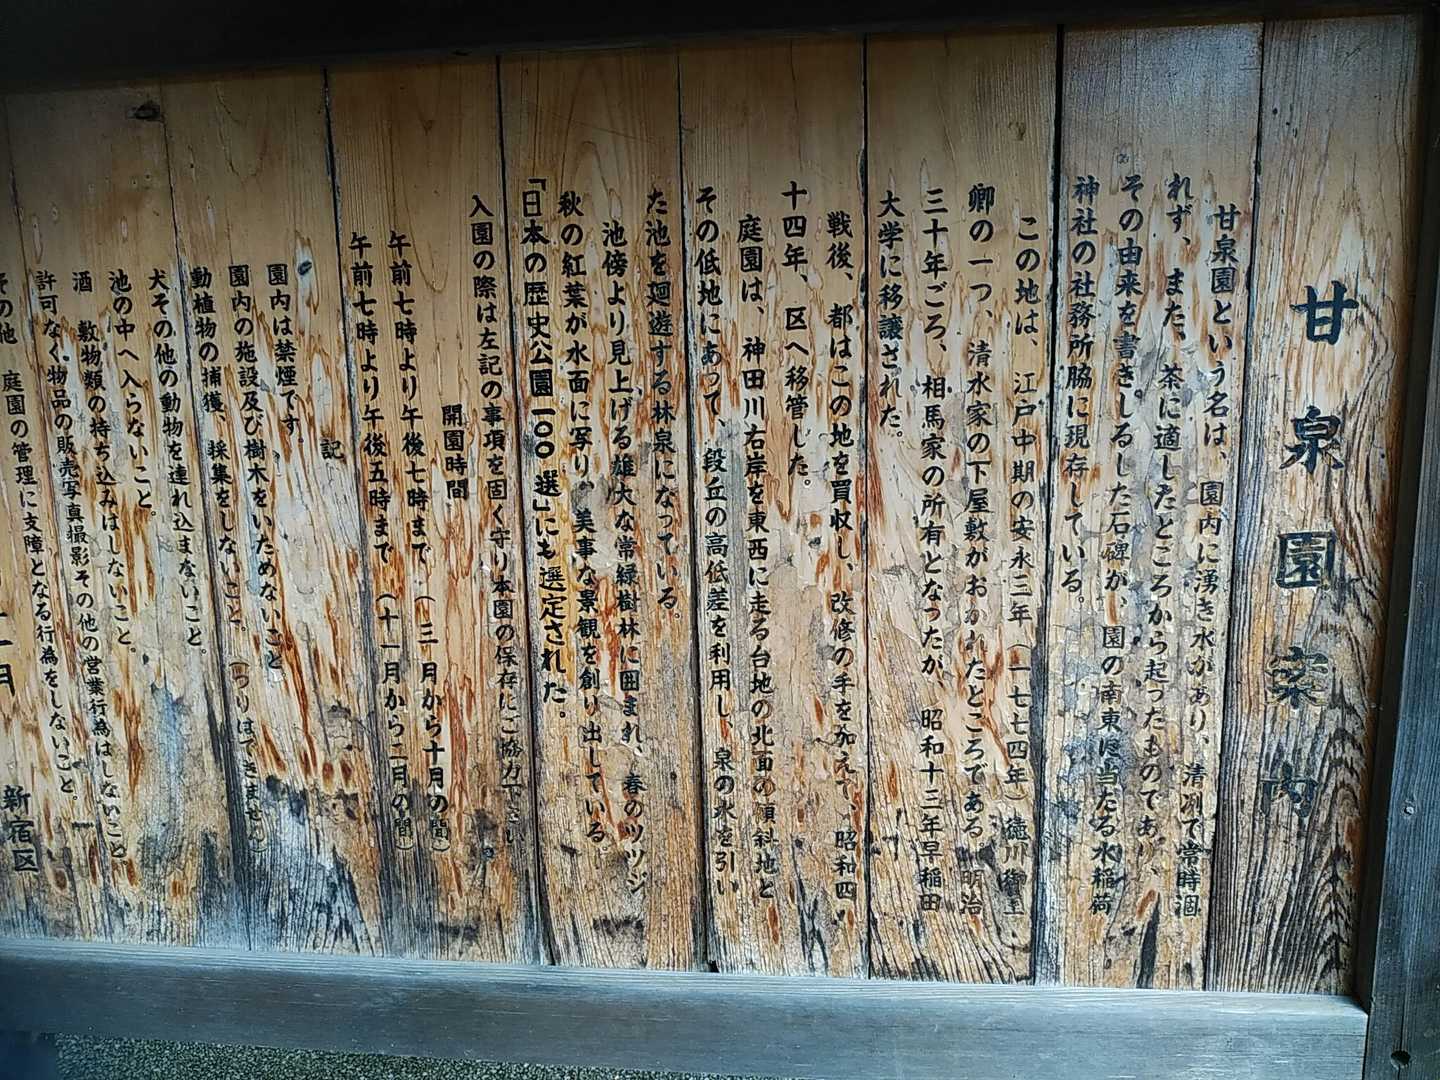 甘泉園案内
甘泉園という名は、園内に湧き水があり、清冽で常時涸
れず、また、茶に適したところから起ったものであり、
その由来を書きしるした石碑が、園の南東に当たる水稲荷
神社の社務所脇に現存している。
この地は、江戸中期の安永三年（一七七四年）徳川御三
卿の一つ、清水家の下屋敷がおかれたところである。明治
三十年ごろ、相馬家の所有となったが、昭和十三年早稲田
大学に移譲された。
戦後、都はこの地を買収し、改修の手を加えて、昭和四
十四年、区へ移管した。
庭園は、神田川右岸を東西に走る台地の北面の傾斜地と
その低地にあって、段丘の高低差を利用し、泉の水を引い
た池を廻遊する林泉になっている。
池傍より見上げる雄大な常緑樹林に囲まれ、春のツツジ
秋の紅葉が水面に写り、美事な景観を創り出している。
「日本の歴史公園一〇〇選」にも選定された。
入園の際は左記の事項を固く守り本園の保存にご協力下さい
開園時間
午前七時より午後七時まで（三月から十月の間）
午前七時より午後五時まで（十一月から二月の間）
記
園内は禁煙です。
園内の施設及び樹木をいためないこと
動植物の捕獲、採集をしないこと。（つりはできません）
犬その他の動物を連れ込まないこと。
池の中へ入らないこと。
酒 敷物類の持ち込みはしないこと
許可なく物品の販売写真撮影その他の営業行為はしないこと
その他 庭園の管理に支障となる行為をしないこと。
二月
新宿区